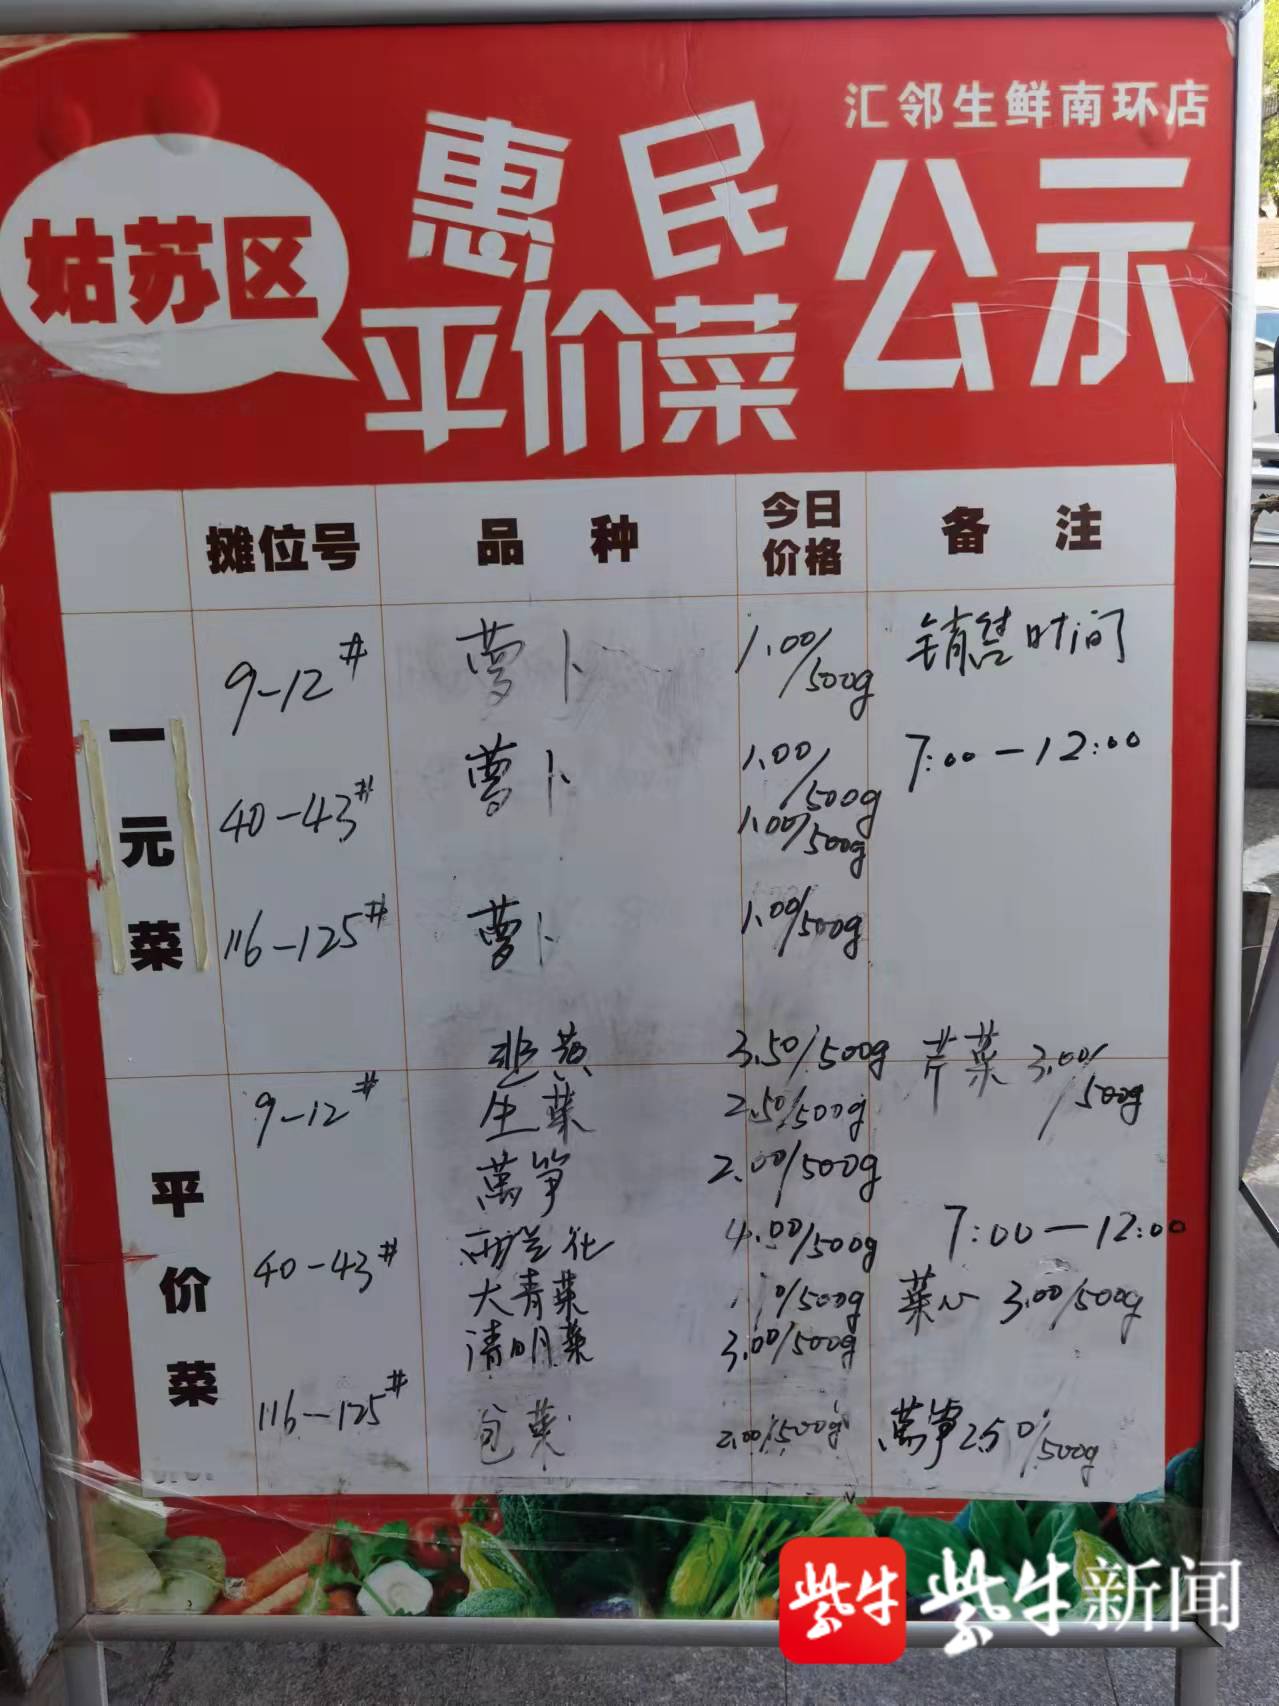 汇邻生鲜南环店
姑苏区
惠民
平价菜
公示
摊位号 品种 今日价格 备注
一元菜
9-12# 萝卜 1.00/500g 销售时间
40-43# 萝卜 1.00/500g 7:00-12:00
1.00/500g
116-125# 萝卜 1.00/500g
平价菜
韭黄 3.50/500g 芹菜 3.00/500g
9-12# 生菜 2.50/500g
萬笋 2.00/500g
40-43# 西兰花 4.00/500g 7:00-12:00
大青菜 /500g 菜心 3.00/500g
清明菜 3.00/500g
116-125# 包菜 2.00/500g 萬笋 2.50/500g
紫牛 紫牛新闻